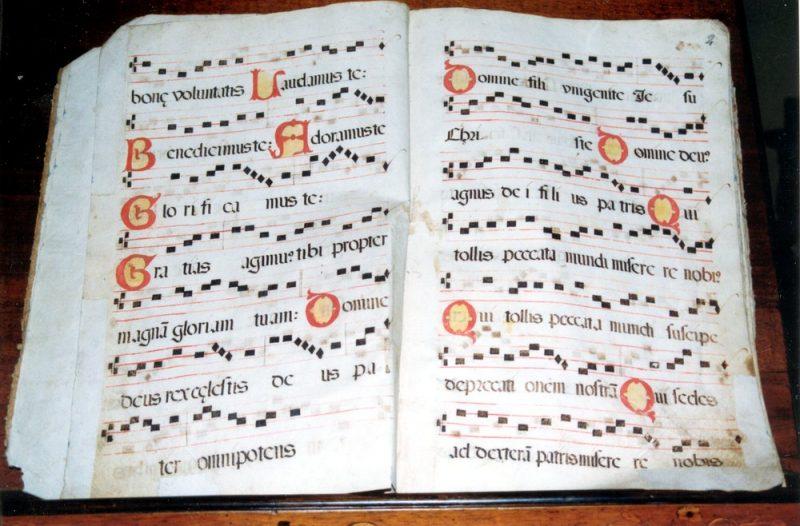 bonę voluntatis Laudamus te:
Benedicimus te: Adoramus te
Glo ri fi ca mus te:
Gra tias agimus tibi propter
magnā gloriam tuam: Domine
deus rex cęlestis de us pa
ter omnipotens
2
Domine fili vnigenite Je su
Chri ste Domine deus
agnus de i fili us pa tris Qui
tollis peccata mundi misere re nobis
Qui tollis peccata mundi suscipe
deprecati onem nostrā Qui sedes
ad dexterā patris misere re nobis